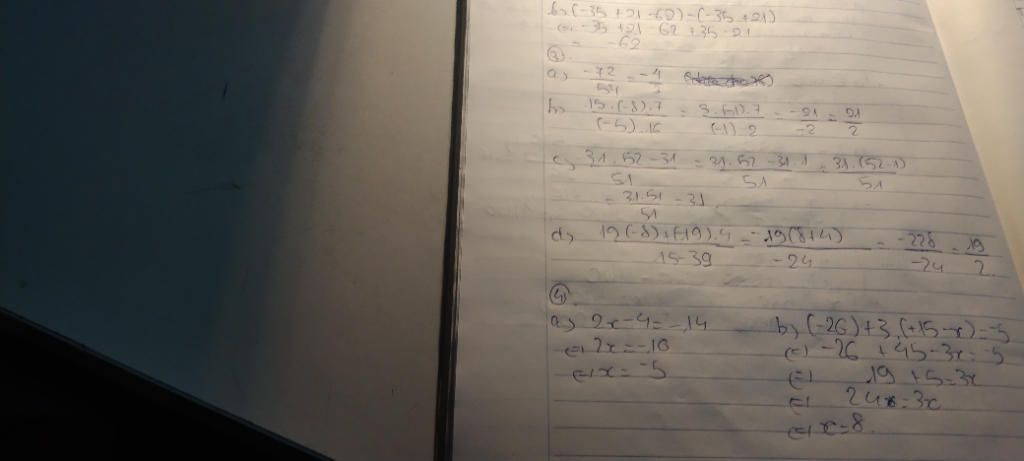 b, (-35 + 21 - 62) - (-35 + 21)
⇔ -35 + 21 - 62 + 35 - 21
= -62
③
a, -72/54 = -4/
b, 15.(-8).7/(-5).16 = 3.(-1).7/(-1).2 = -21/-2 = 21/2
c, 31.52-31/51 = 31.52-31.1/51 = 31.(52-1)/51
= 31.51/51 = 31
d, 19(-8)+(-19).4/15-39 = -19(8+4)/-24 = -228/-24 = 19/2
④
a, 2x-4=-14 b, (-26)+3.(+15-x)=-5
⇔ 2x=-10 ⇔ -26 +45-3x=-5
⇔ x=-5 ⇔ 19+5=3x
⇔ 24=3x
⇔ x=8.